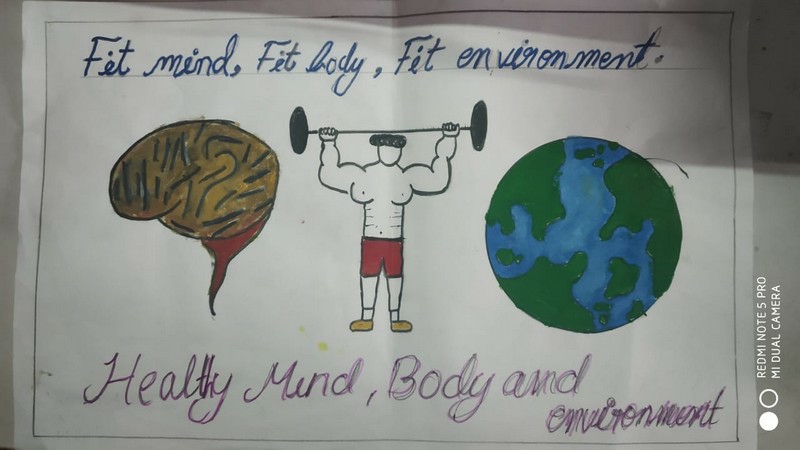 Fit mind, Fit body, Fit environment.
Healthy Mind, Body and
environment
REDMI NOTE 5 PRO
MI DUAL CAMERA